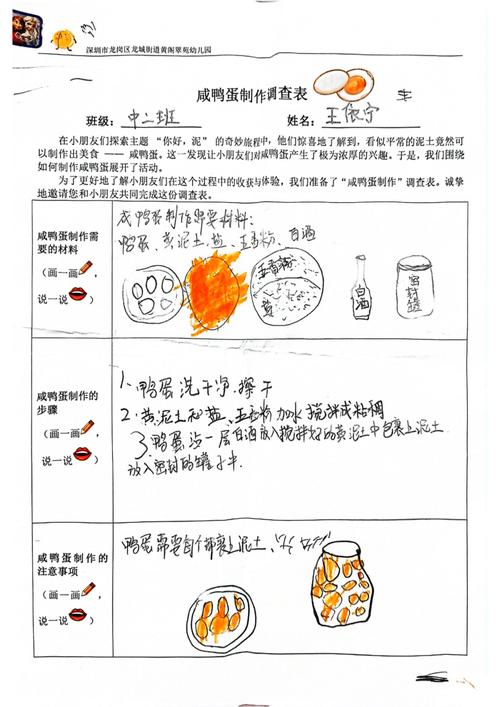 深圳市龙岗区龙城街道黄阁翠苑幼儿园
咸鸭蛋制作调查表
班级：中二班 姓名：王依宁
在小朋友们探索主题 “你好，泥” 的奇妙旅程中，他们惊喜地了解到，看似平常的泥土竟然可
以制作出美食 —— 咸鸭蛋。这一发现让小朋友们对咸鸭蛋产生了极为浓厚的兴趣。于是，我们围绕
如何制作咸鸭蛋展开了活动。
为了更好地了解小朋友们在这个过程中的收获与体验，我们准备了 “咸鸭蛋制作” 调查表。诚挚
地邀请您和小朋友共同完成这份调查表。
咸鸭蛋制作需
要的材料
（画一画，
说一说）
咸鸭蛋制作需要材料：
鸭蛋、黄泥土、盐、五香粉、白酒
五香粉
盐
白酒
密封罐
咸鸭蛋制作的
步骤
（画一画，
说一说）
1、鸭蛋洗干净、擦干
2、黄泥土和盐、五香粉加水搅拌成粘稠
3、鸭蛋沾一层白酒放入搅拌好的黄泥土中包裹上泥土
放入密封的罐子中.
咸鸭蛋制作的
注意事项
（画一画，
说一说）
鸭蛋需要每个都裹上泥土、